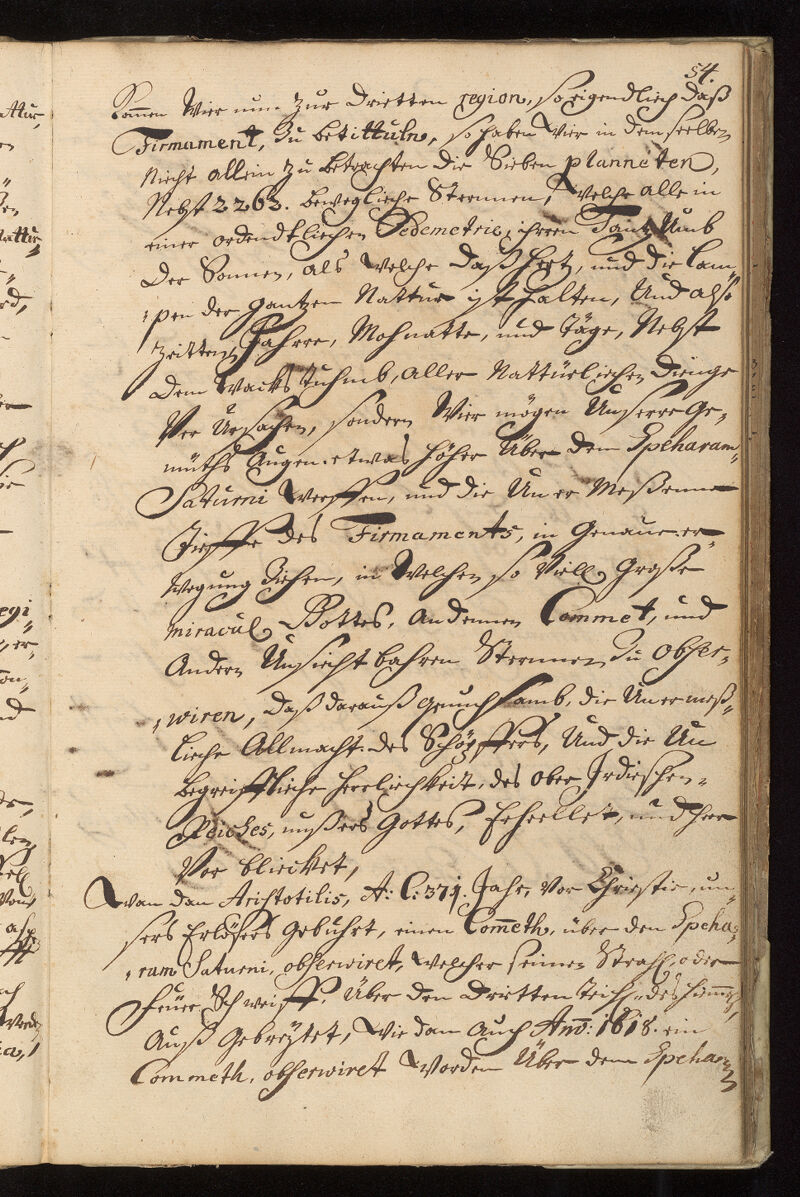 54.
Komen Wier nun zur Drietten region, so eigendlich daß
Firmament, zu betittuln, so haben Wier in dem seelben
Nicht allein zu betrachten die Sieben planneten,
Nebst 2263. bewegliche Sternnen, Welche alle in
einer ordendtlichen Sedemetrie, ihren Tantz Umb
der Sonnen, als Welche daß Hertz, und die Lam„
„pen der gantzen Nattur ist halten, Und also
Zeitten, Jahre, Mohnatte, und Täge, Nebst
dem Wacksthuhmb, aller Nattürlichen Dienge
Ver Ursachen, sondern Wier mögen Unserre Ge„
müths Augen etwas höher Über dem Spcharam
Saturni Werffen, und die Un er Meßenne
Tieffe des Firmaments, in Genaue er„
Wegung Ziehen, in Welchen so Viell Große
miracul Gottes, an dennen Commet, und
Andern Unsicht bahren Sternnen zu obser„
„wiren, daß darauß genuchsamb, die Un er meß„
liche Allmacht des Schöpffers, Und die Un
begreiffliche Herrlichkeit, des ober Irdischen
Reiches, unsers Gottes, Erhellet, und her
Vor blicket,
Wan dan Aristotilis, A: C: 371. Jahr, Vor Christie, un„
sers Erlösers Gebuhrt, einen Com̄eth, über den Speha„
„ram Saturni, obserwiret, Welcher seinen Strahl oder
Feuer Schweiff, Über den Dritten Teihl des Him̄els,
Auß Gebreytet, Wie dan Auch Ano: 1618. ein
Commeth, obserwiret Worden Über dem Spcharam